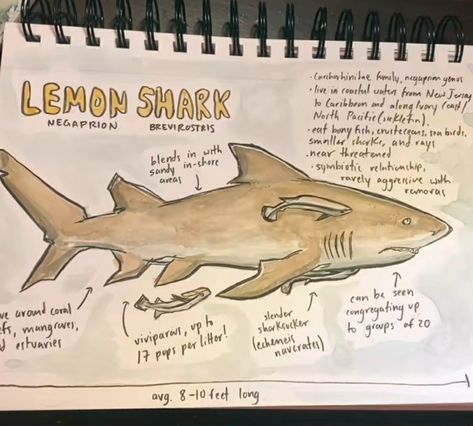 LEMON SHARK
NEGAPRION BREVIROSTRIS
· Carcharhinidae family, negaprion genus
· live in coastal waters from New Jersey
to Caribbean and along Ivory Coast/
North Pacific
· eat bony fish, crustaceans, sea birds,
smaller sharks, and rays
· near threatened
· symbiotic relationship,
rarely aggressive with
remoras
blends in with
sandy in-shore
areas
ve around coral
efs, mangroves,
d estuaries
viviparous, up to
17 pups per litter!
slender
sharksucker
(echeneis
naucrates)
can be seen
congregating up
to groups of 20
avg. 8-10 feet long